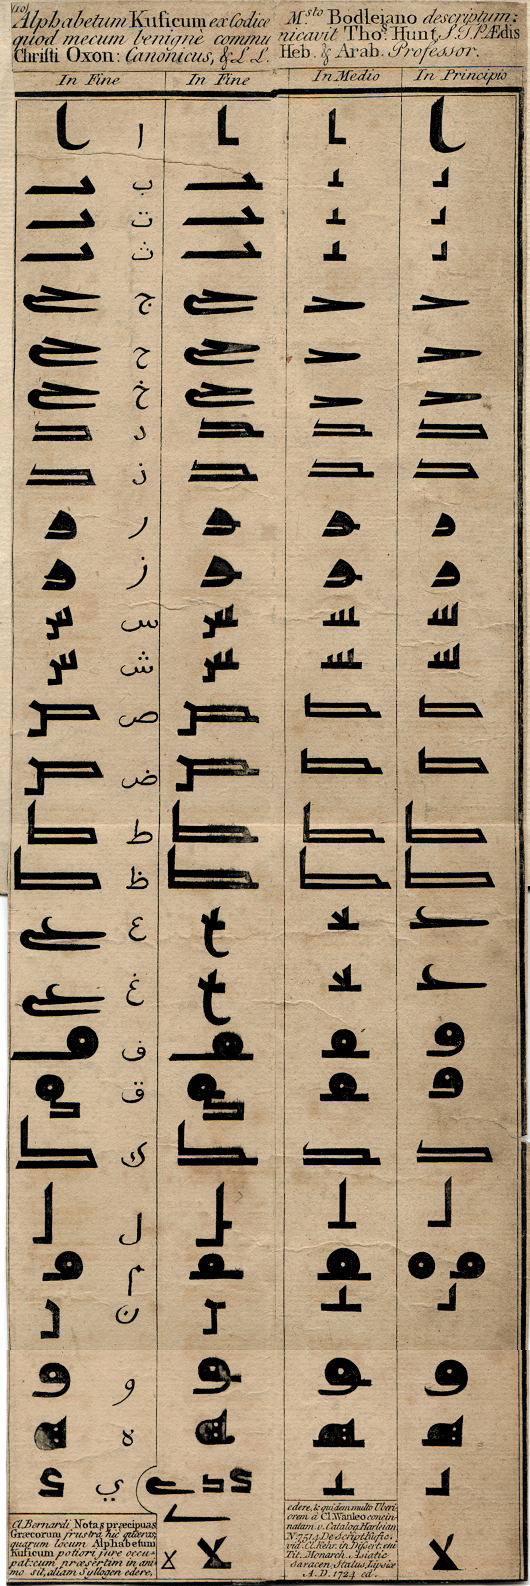 (10)
Alphabetum Kuficum ex Codice Msto Bodlejano descriptum;
quod mecum benignè communicavit Thos. Hunt, S.T.P. Ædis
Christi Oxon: Canonicus, & L L. Heb. & Arab. Professor.
In Fine In Fine In Medio In Principio
ا
ب
ت
ث
ج
ح
خ
د
ذ
ر
ز
س
ش
ص
ض
ط
ظ
ع
غ
ف
ق
ك
ل
م
ن
و
ه
ي
لا
Cl. Bernardi Notas præcipuas
Græcorum frustra huc quæras,
quarum locum Alphabetum
Kuficum potiori jure occu-
pat: cum præsertim in ani-
mo sit, aliam Syllogen edere,
edere, & quidem multo Uberi-
orem a Cl. Wanleo concin-
natam. v. Catalog. Harleian.
N. 7514. De Script. Kufic.
vid. Cl. Kehr. in Dissert. cui
Tit. Monarch. Asiatic
Saracen. Status, Lipsiæ
A. D. 1724 ed.